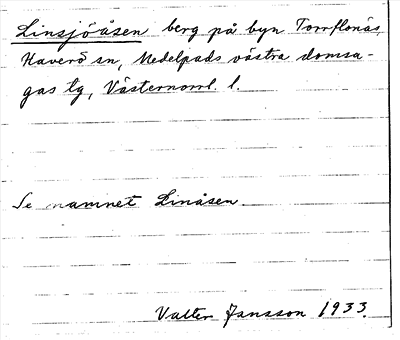 Linsjöåsen berg på byn Torrflonäs,
Haverö sn, Medelpads västra domsa-
gas tg, Västernorrl. l.
Se namnet Linåsen
Valter Jansson 1933.